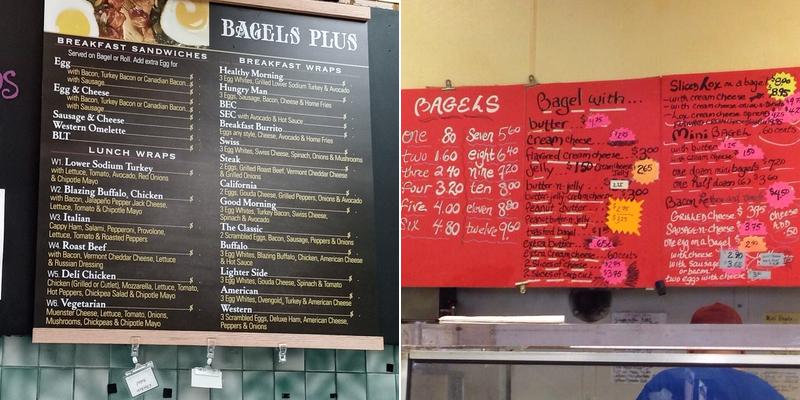 BAGELS PLUS
BREAKFAST SANDWICHES
Served on Bagel or Roll. Add extra Egg for
Egg
with Bacon, Turkey Bacon or Canadian Bacon
with Sausage
Egg & Cheese
with Bacon, Turkey Bacon or Canadian Bacon
with Sausage
Sausage & Cheese
Western Omelette
BLT
LUNCH WRAPS
W1. Lower Sodium Turkey
with Lettuce, Tomato, Avocado, Red Onions
& Chipotle Mayo
W2. Blazing Buffalo, Chicken
with Bacon, Jalapeño Pepper Jack Cheese,
Lettuce, Tomato & Chipotle Mayo
W3. Italian
Cappy Ham, Salami, Pepperoni, Provolone,
Lettuce, Tomato & Roasted Peppers
W4. Roast Beef
with Bacon, Vermont Cheddar Cheese, Lettuce
& Russian Dressing
W5. Deli Chicken
Chicken (Grilled or Cutlet), Mozzarella, Lettuce, Tomato,
Hot Peppers, Chickpea Salad & Chipotle Mayo
W6. Vegetarian
Muenster Cheese, Lettuce, Tomato, Onions,
Mushrooms, Chickpeas & Chipotle Mayo
BREAKFAST WRAPS
Healthy Morning
3 Egg Whites, Grilled Lower Sodium Turkey & Avocado
Hungry Man
3 Eggs, Sausage, Bacon, Cheese & Home Fries
BEC
SEC with Avocado & Hot Sauce
Breakfast Burrito
Eggs any style, Cheese, Avocado & Home Fries
Swiss
3 Egg Whites, Swiss Cheese, Spinach, Onions & Mushrooms
Steak
2 Eggs, Grilled Roast Beef, Vermont Cheddar Cheese
& Grilled Onions
California
2 Eggs, Gouda Cheese, Grilled Peppers, Onions & Avocado
Good Morning
3 Egg Whites, Turkey Bacon, Swiss Cheese,
Spinach & Avocado
The Classic
2 Scrambled Eggs, Bacon, Sausage, Peppers & Onions
Buffalo
3 Egg Whites, Blazing Buffalo, Chicken, American Cheese
& Hot Sauce
Lighter Side
3 Egg Whites, Gouda Cheese, Spinach & Tomato
American
3 Egg Whites, Ovengold, Turkey & American Cheese
Western
3 Scrambled Eggs, Deluxe Ham, American Cheese,
Peppers & Onions
BAGELS
one 80 Seven 5.60
two 1.60 eight 6.40
three 2.40 nine 7.20
four 3.20 ten 8.00
five 4.00 eleven 8.80
Six 4.80 twelve 9.60
Bagel with...
butter
Cream cheese
flavored cream cheese 3.00
Jelly 1.50
butter-n-jelly
Peanut butter
Toasted bagel
Extra butter
Extra cream cheese 60 cents
2 Slices of cheese
2 Slices of
Slices Lox on a bagel
with cream cheese
Mini Bagels 60 cents
with butter
with cream cheese
one dozen mini bagels 7.20
one half dozen (6) 3.60
Grilled cheese $3.95
Sausage-n-cheese 3.75
one egg on a bagel
with cheese
with sausage
or bacon
two eggs with cheese